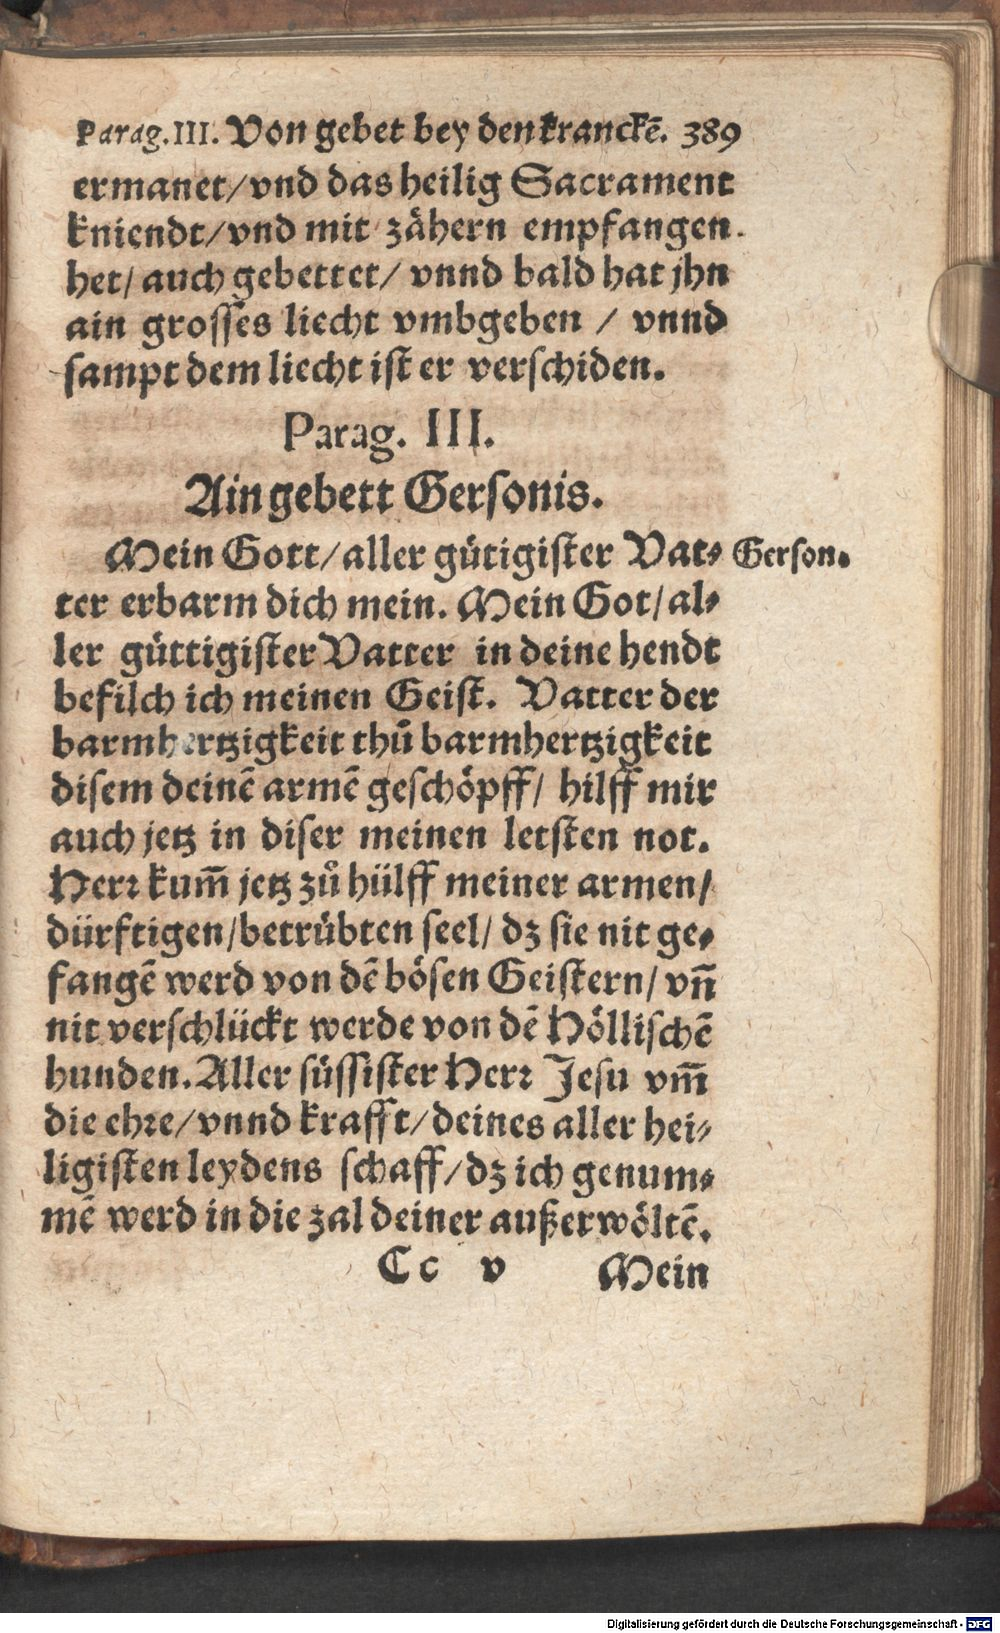 Parag. III. Von gebet bey den kranckē. 389
ermanet/ vnd das heilig Sacrament
kniendt/ vnd mit zähern empfangen.
het/ auch gebettet/ vnnd bald hat jhn
ain grosses liecht vmbgeben / vnnd
sampt dem liecht ist er verschiden.
Parag. III.
Ain gebett Gersonis.
Mein Gott/ aller gütigister Vat- Gerson.
ter erbarm dich mein. Mein Got/ al-
ler güttigister Vatter in deine hendt
befilch ich meinen Geist. Vatter der
barmhertzigkeit thů barmhertzigkeit
disem deinē armē geschöpff/ hilff mir
auch jetz in diser meinen letsten not.
Herr kum̄ jetz zů hülff meiner armen/
dürftigen/ betrübten seel/ dz sie nit ge-
fangē werd von dē bösen Geistern/ vn̄
nit verschlückt werde von dē Höllischē
hunden. Aller süssister Herr Jesu vm̄
die ehre/ vnnd krafft/ deines aller hei-
ligisten leydens schaff/ dz ich genum-
mē werd in die zal deiner außerwöltē.
Cc v Mein
Digitalisierung gefördert durch die Deutsche Forschungsgemeinschaft - DFG